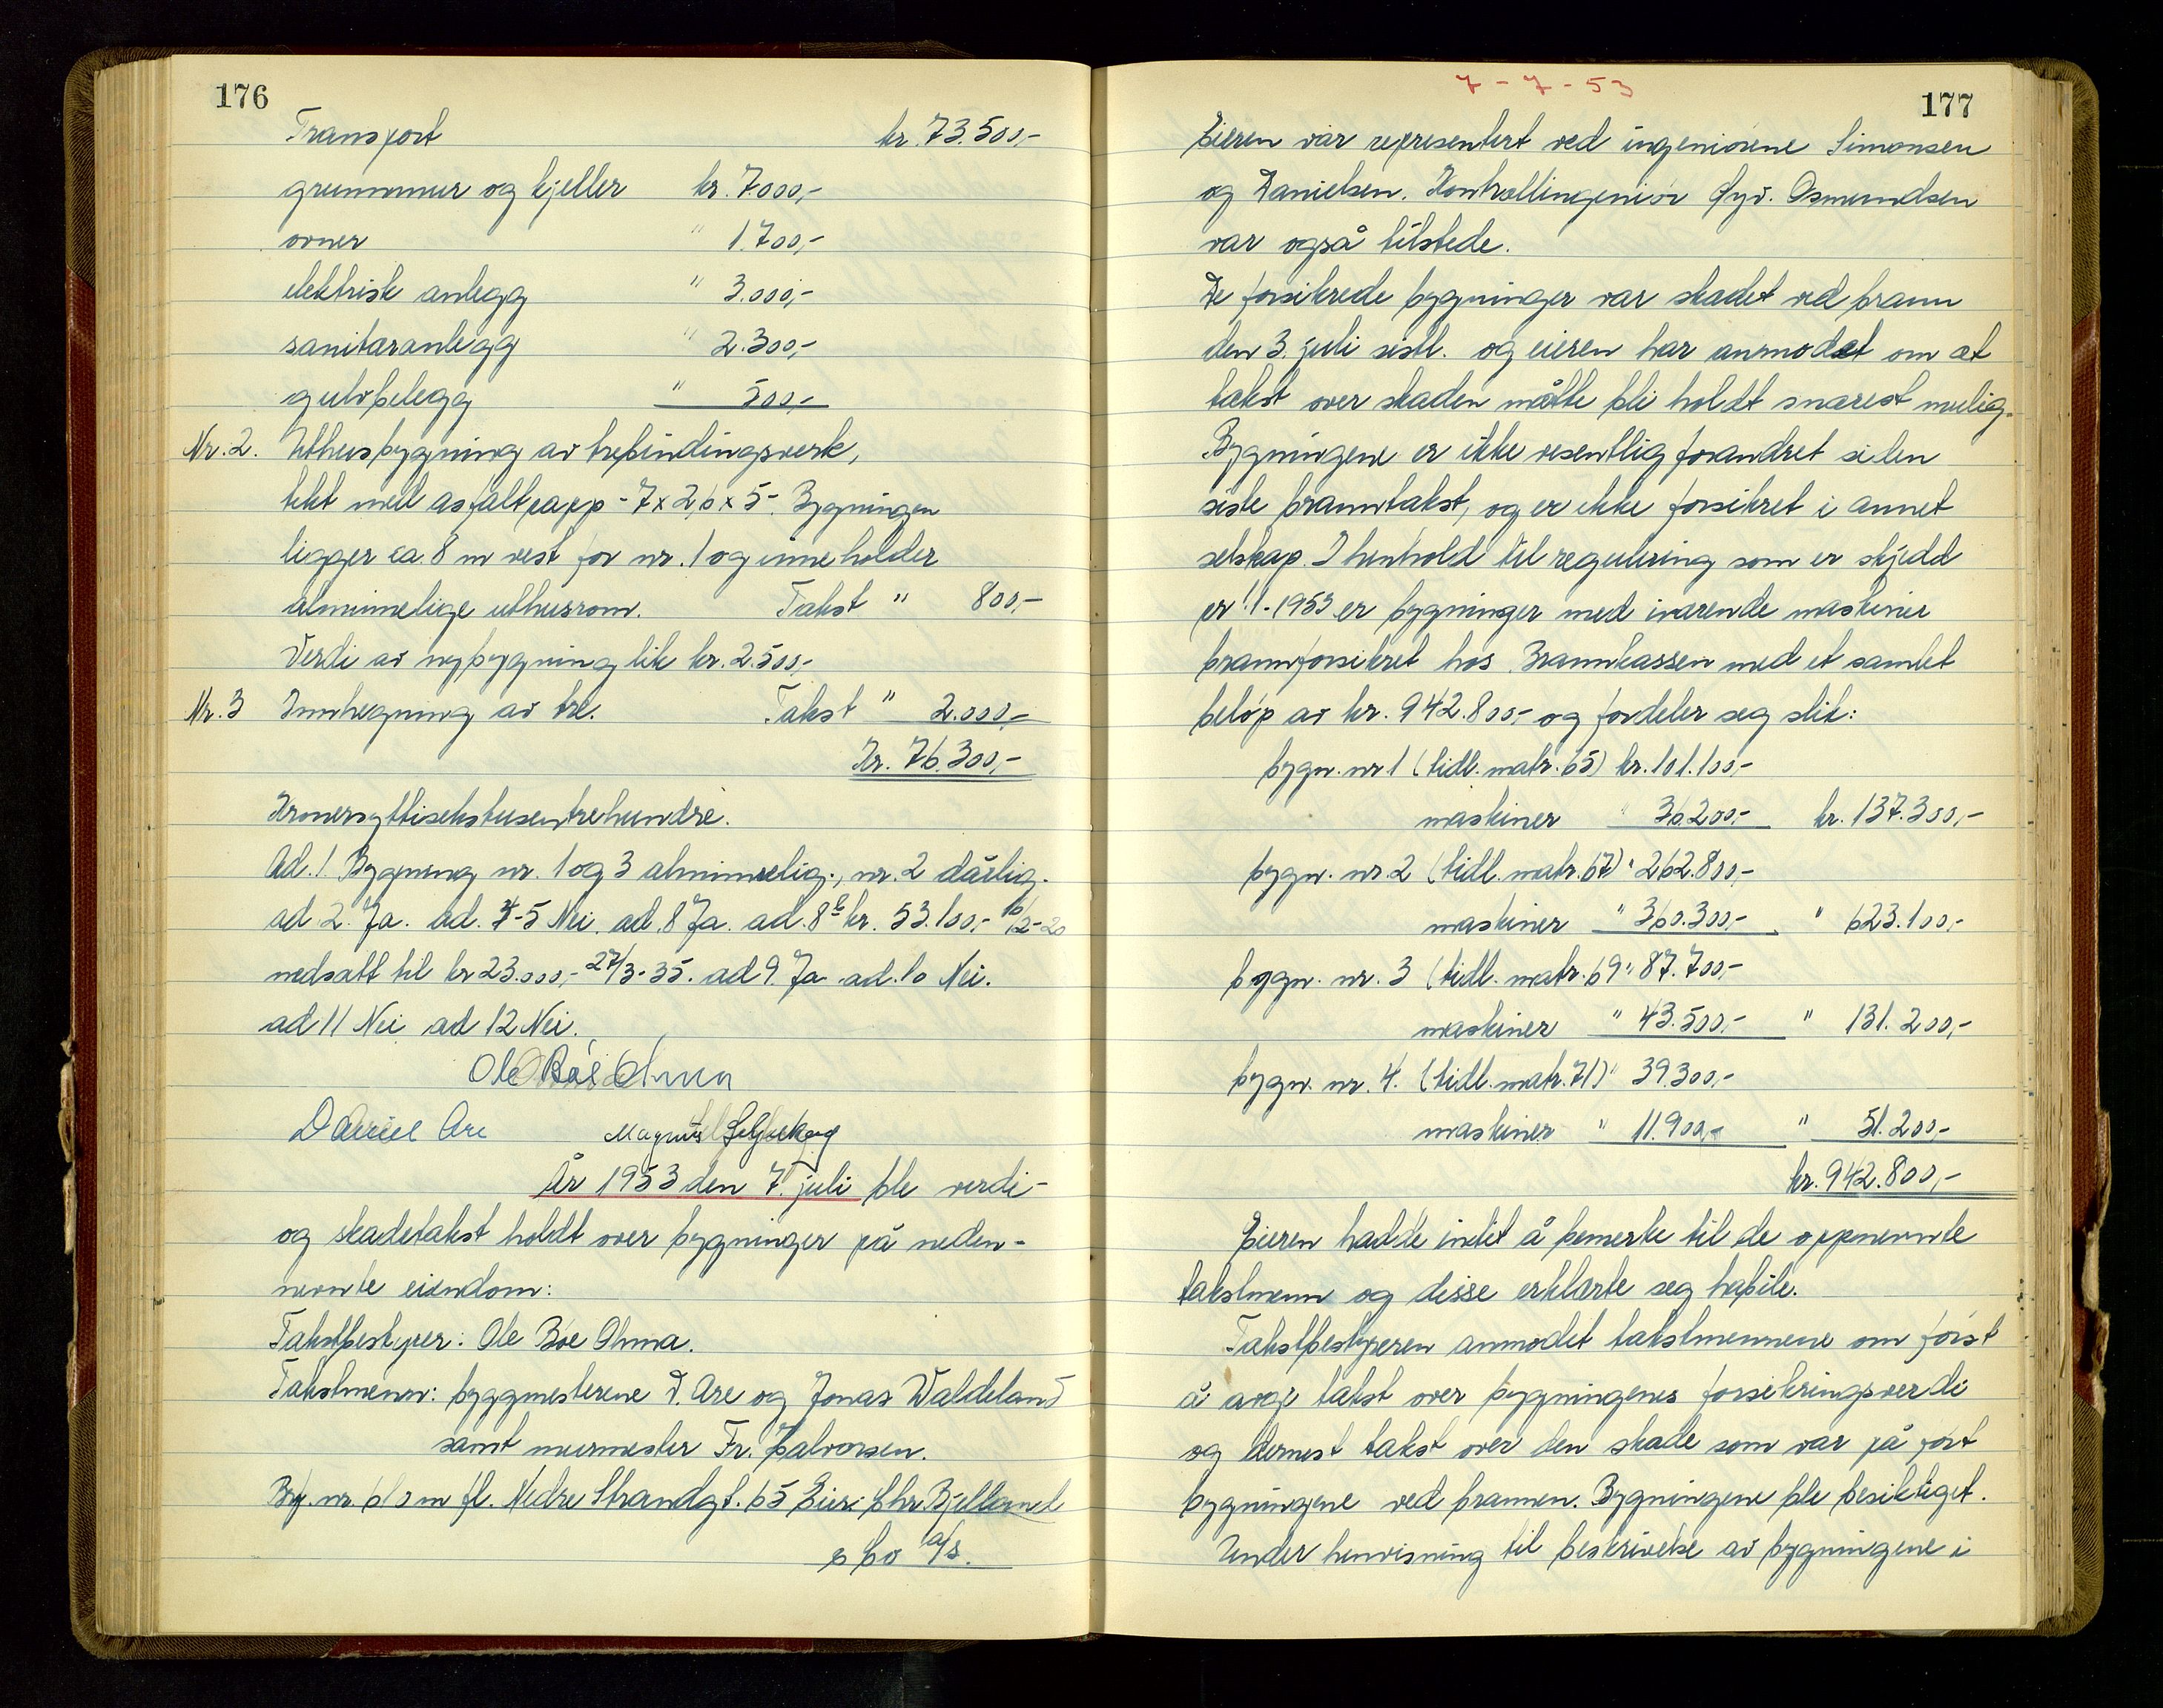 176
Transport kr. 73.500,-
grunnmur og kjeller kr. 7.000,-
ovner " 1.700,-
elektrisk anlegg " 3.000,-
sanitæranlegg " 2.300,-
gulvbelegg " 500,-
Nr. 2. Uthusbygning av trebindingsverk,
tekt med asfaltpapp - 7 x 2,6 x 5 -. Bygningen
ligger ca. 8 m vest for nr. 1 og inneholder
alminnelige uthusrom. Takst " 800,-
Verdi av nybygning lik kr. 2.500,-
Nr. 3 Innhegning av tre. Takst " 2.000,-
Kr. 76.300,-
Kronersyttisekstusentrehundre.
Ad. 1 Bygning nr. 1 og 3 alminnelig., nr. 2 dårlig.
ad 2. Ja. ad. 4-5 Nei. ad. 8 Ja. ad. 8b kr. 53.100,- 16/2-20
nedsatt til kr 23.000,- 27/3-35. ad 9. Ja ad. 10 Nei.
ad 11 Nei ad 12 Nei.
Ole Bøe Ohma
Daniel Are Magnus
År 1953 den 7. juli ble verdi-
og skadetakst holdt over bygninger på neden-
nevnte eiendom:
Takstbestyrer: Ole Bøe Ohma.
Takstmenn: byggmesterene D. Are og Jonas Waldeland
samt murmester Fr. Halvorsen.
By. nr. 61 o m fl. Nedre Strandgt. 65 Eier: Chr. Bjelland
& Co a/s.
7-7-53
177
Eieren var representert ved ingeniørene Simonsen
og Danielsen. Kontrollingeniør Øyv. Osmundsen
var også tilstede.
De forsikrede bygninger var skadet ved brann
den 3. juli sistl. og eieren har anmodet om at
takst over skaden måtte bli holdt snarest mulig.
Bygningene er ikke vesentlig forandret siden
siste branntakst, og er ikke forsikret i annet
selskap. I henhold til regulering som er skjedd
pr 1/1-1953 er bygninger med ivarende maskiner
brannforsikret hos Brannkassen med et samlet
beløp av kr. 942.800,- og fordeler seg slik:
bygn. nr. 1 (tidl. matr. 65) kr. 101.100,-
maskiner " 36.200,- kr. 137.300,-
bygn. nr. 2 (tidl. matr. 67) " 262.800,-
maskiner " 360.300,- " 623.100,-
bygn. nr. 3 (tidl. matr. 69 " 87.700,-
maskiner " 43.500,- " 131.200,-
bygn. nr. 4. (tidl. matr. 71) " 39.300,-
maskiner " 11.900,- " 51.200,-
kr. 942.800,-
Eieren hadde intet å bemerke til de oppnevnte
takstmenn og disse erklærte seg habile.
Takstbestyreren anmodet takstmennene om først
å avgi takst over bygningenes forsikringsverdi
og dernest takst over den skade som var på ført
bygningene ved brannen. Bygningene ble besiktiget.
Under henvisning til beskrivelse av bygningene i